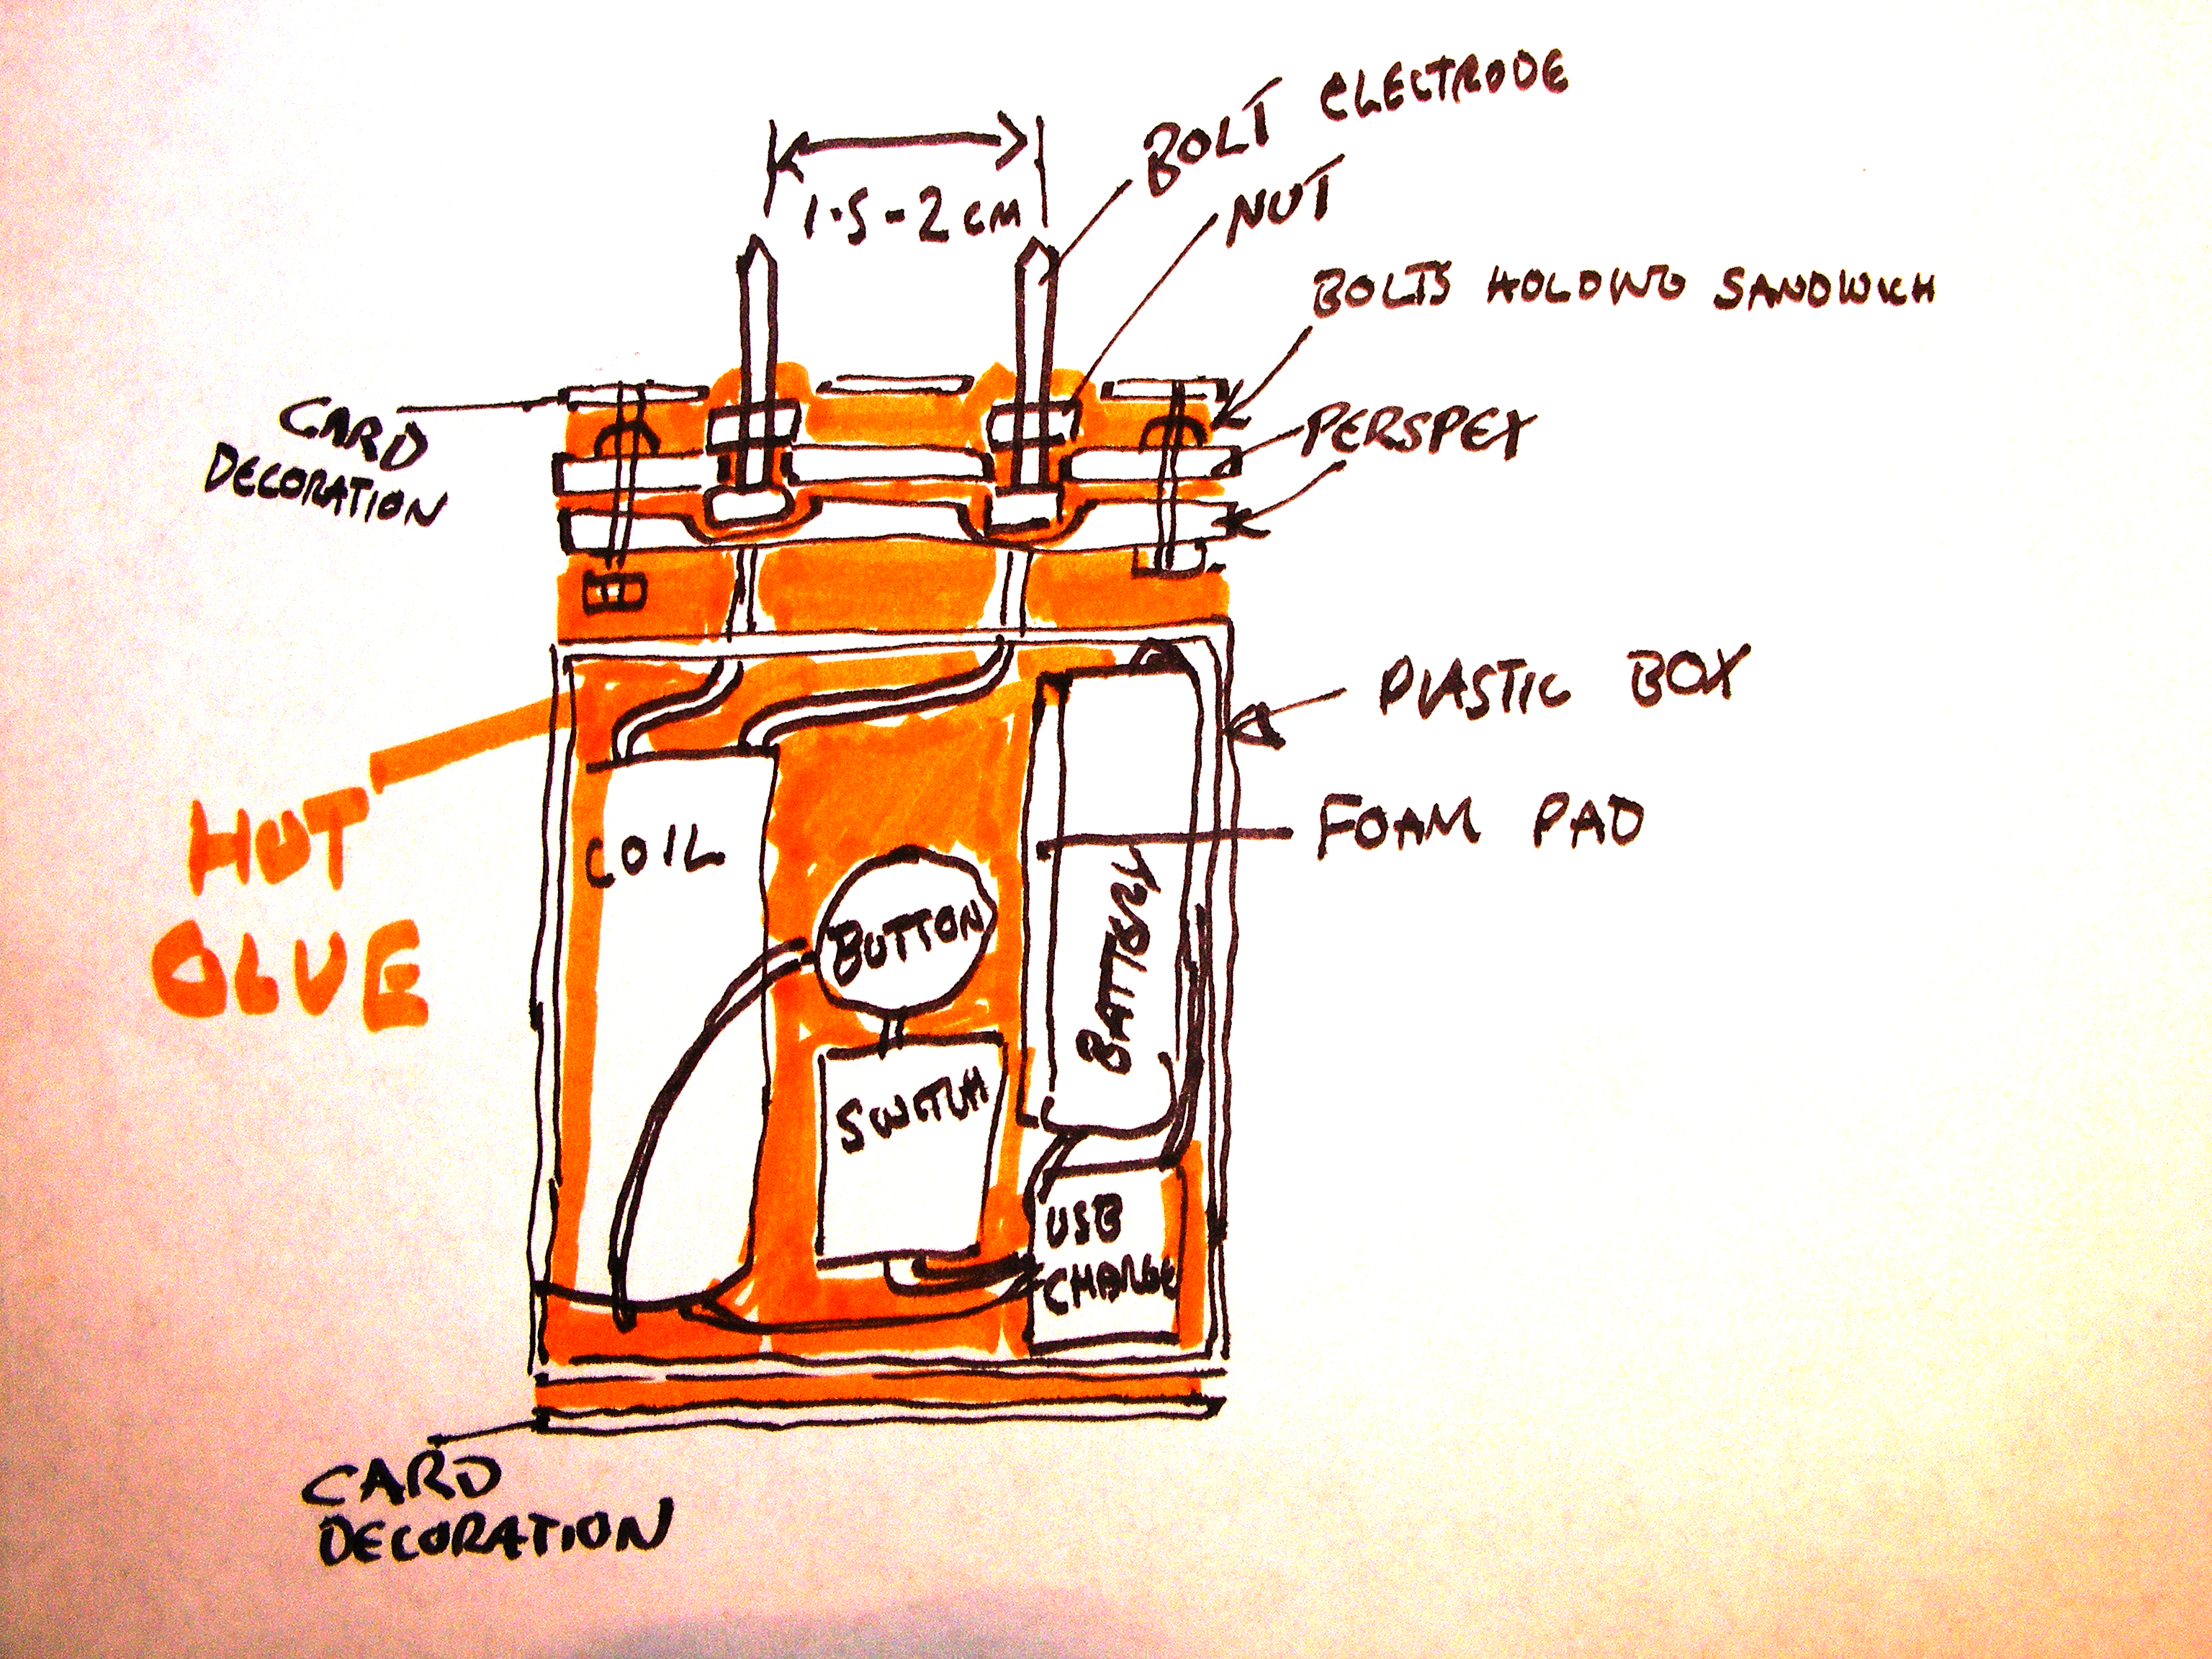 BOLT ELECTRODE
1.5-2CM
NUT
BOLTS HOLDING SANDWICH
CARD
DECORATION
PERSPEX
PLASTIC BOX
HOT
GLUE
FOAM PAD
COIL
BUTTON
BATTERY
SWITCH
USB
CHARGE
CARD
DECORATION